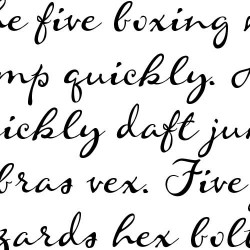 he five boxing
mp quickly.
ickly daft ju
bras vex. Five
zards hex bolt